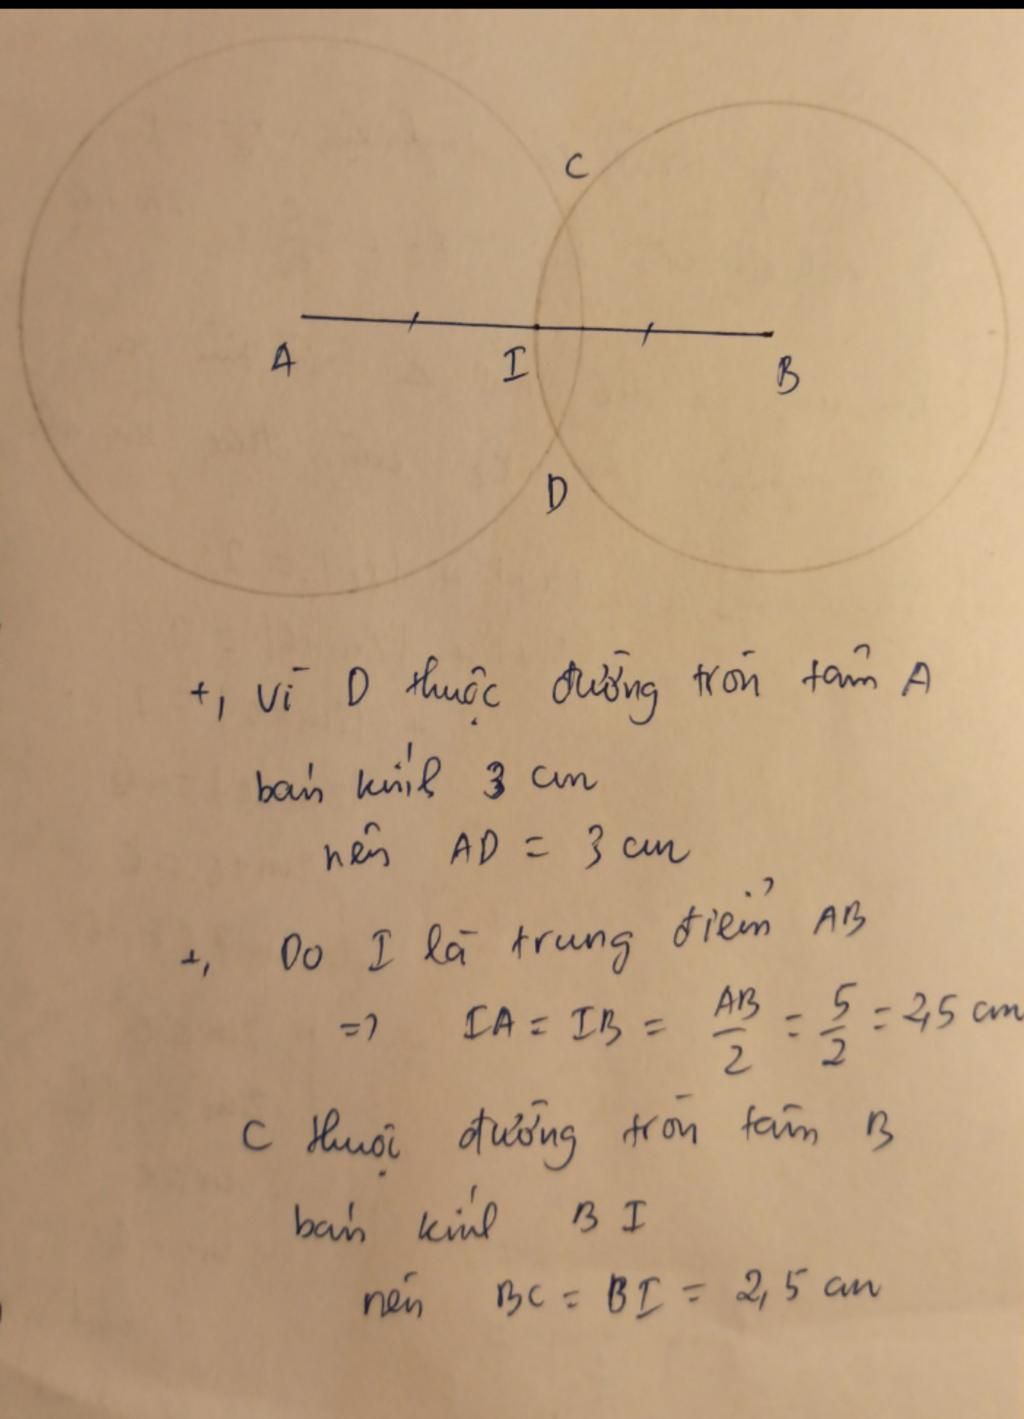 C
A
I
B
D
+, Vì D thuộc đường tròn tâm A
bán kính 3 cm
nên AD = 3 cm
+, Do I là trung điểm AB
=> IA = IB = AB/2 = 5/2 = 2,5 cm
C thuộc đường tròn tâm B
bán kính BI
nên BC = BI = 2,5 cm